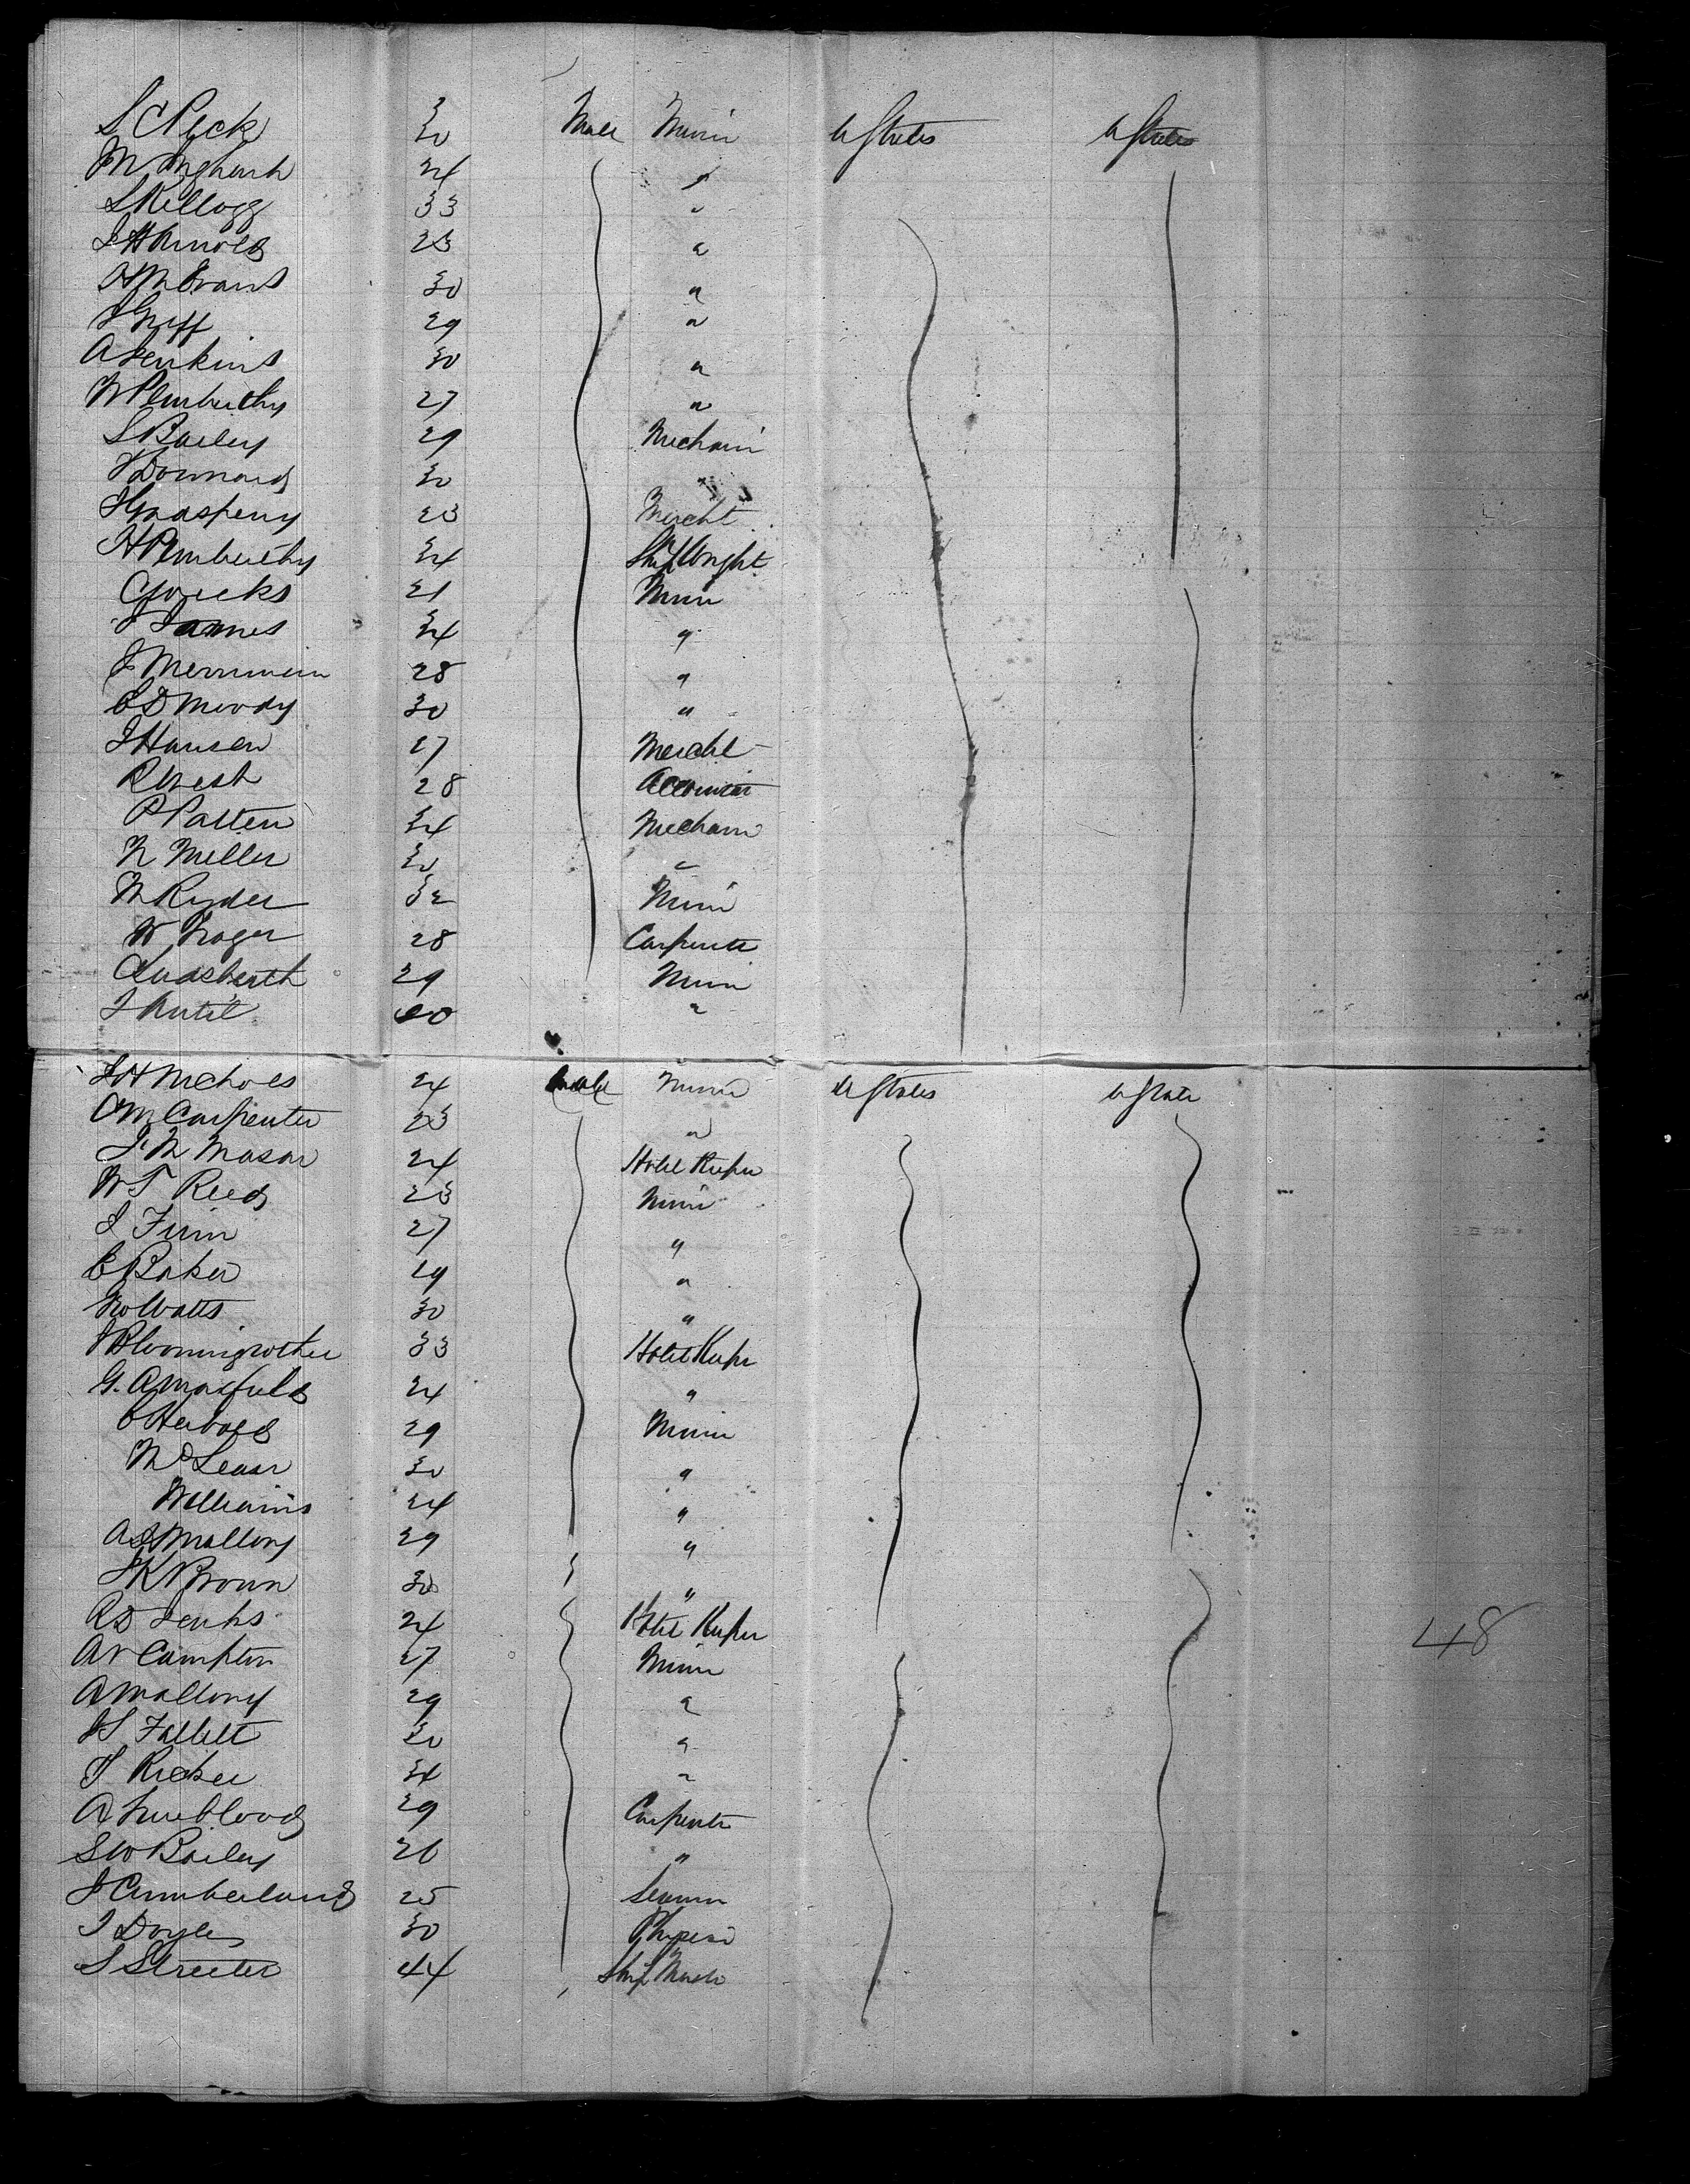 S C Peck 30 Male Miner U States U States
M Ingham 24 "
S Kellogg 33 "
J H Arnold 23 "
A M Evans 30 "
J Neff 29 "
A Jenkins 30 "
W Pemberthy 27 "
S Bailey 29 Mechani
Downard 30 "
23 Mercht
H Pemberthy 34 Ship Wright
21 Miner
J James 34 "
J Merriman 28 "
C D Moody 30 "
J Hansen 27 Mercht
R West 28 Accountat
P Patten 34 Mechani
N Miller 30 "
W Ryder 32 Miner
W 28 Carpenter
29 Miner
J 20 "
J H Nichols 24 Male Miner U States U State
C M Carpenter 23 "
J N Mason 24 Hotel Keeper
W T Reed 23 Miner
J Finn 27 "
C Baker 29 "
Watts 30 "
33 Hotel Keepr
G. A Maxfield 24 "
C 29 Miner
McLean 30 "
Williams 24 "
A S Mallory 29 "
J K Brown 30 "
R D Jenks 24 Hotel Keeper
A V Campton 27 Miner
A Mallory 29 "
J S Follett 30 "
J Ricker 34 "
A Trueblood 29 Carpenter
S W Bailey 26 "
J Cumberland 25 Seaman
J Doyle 30
S Streeter 44 Ship
48